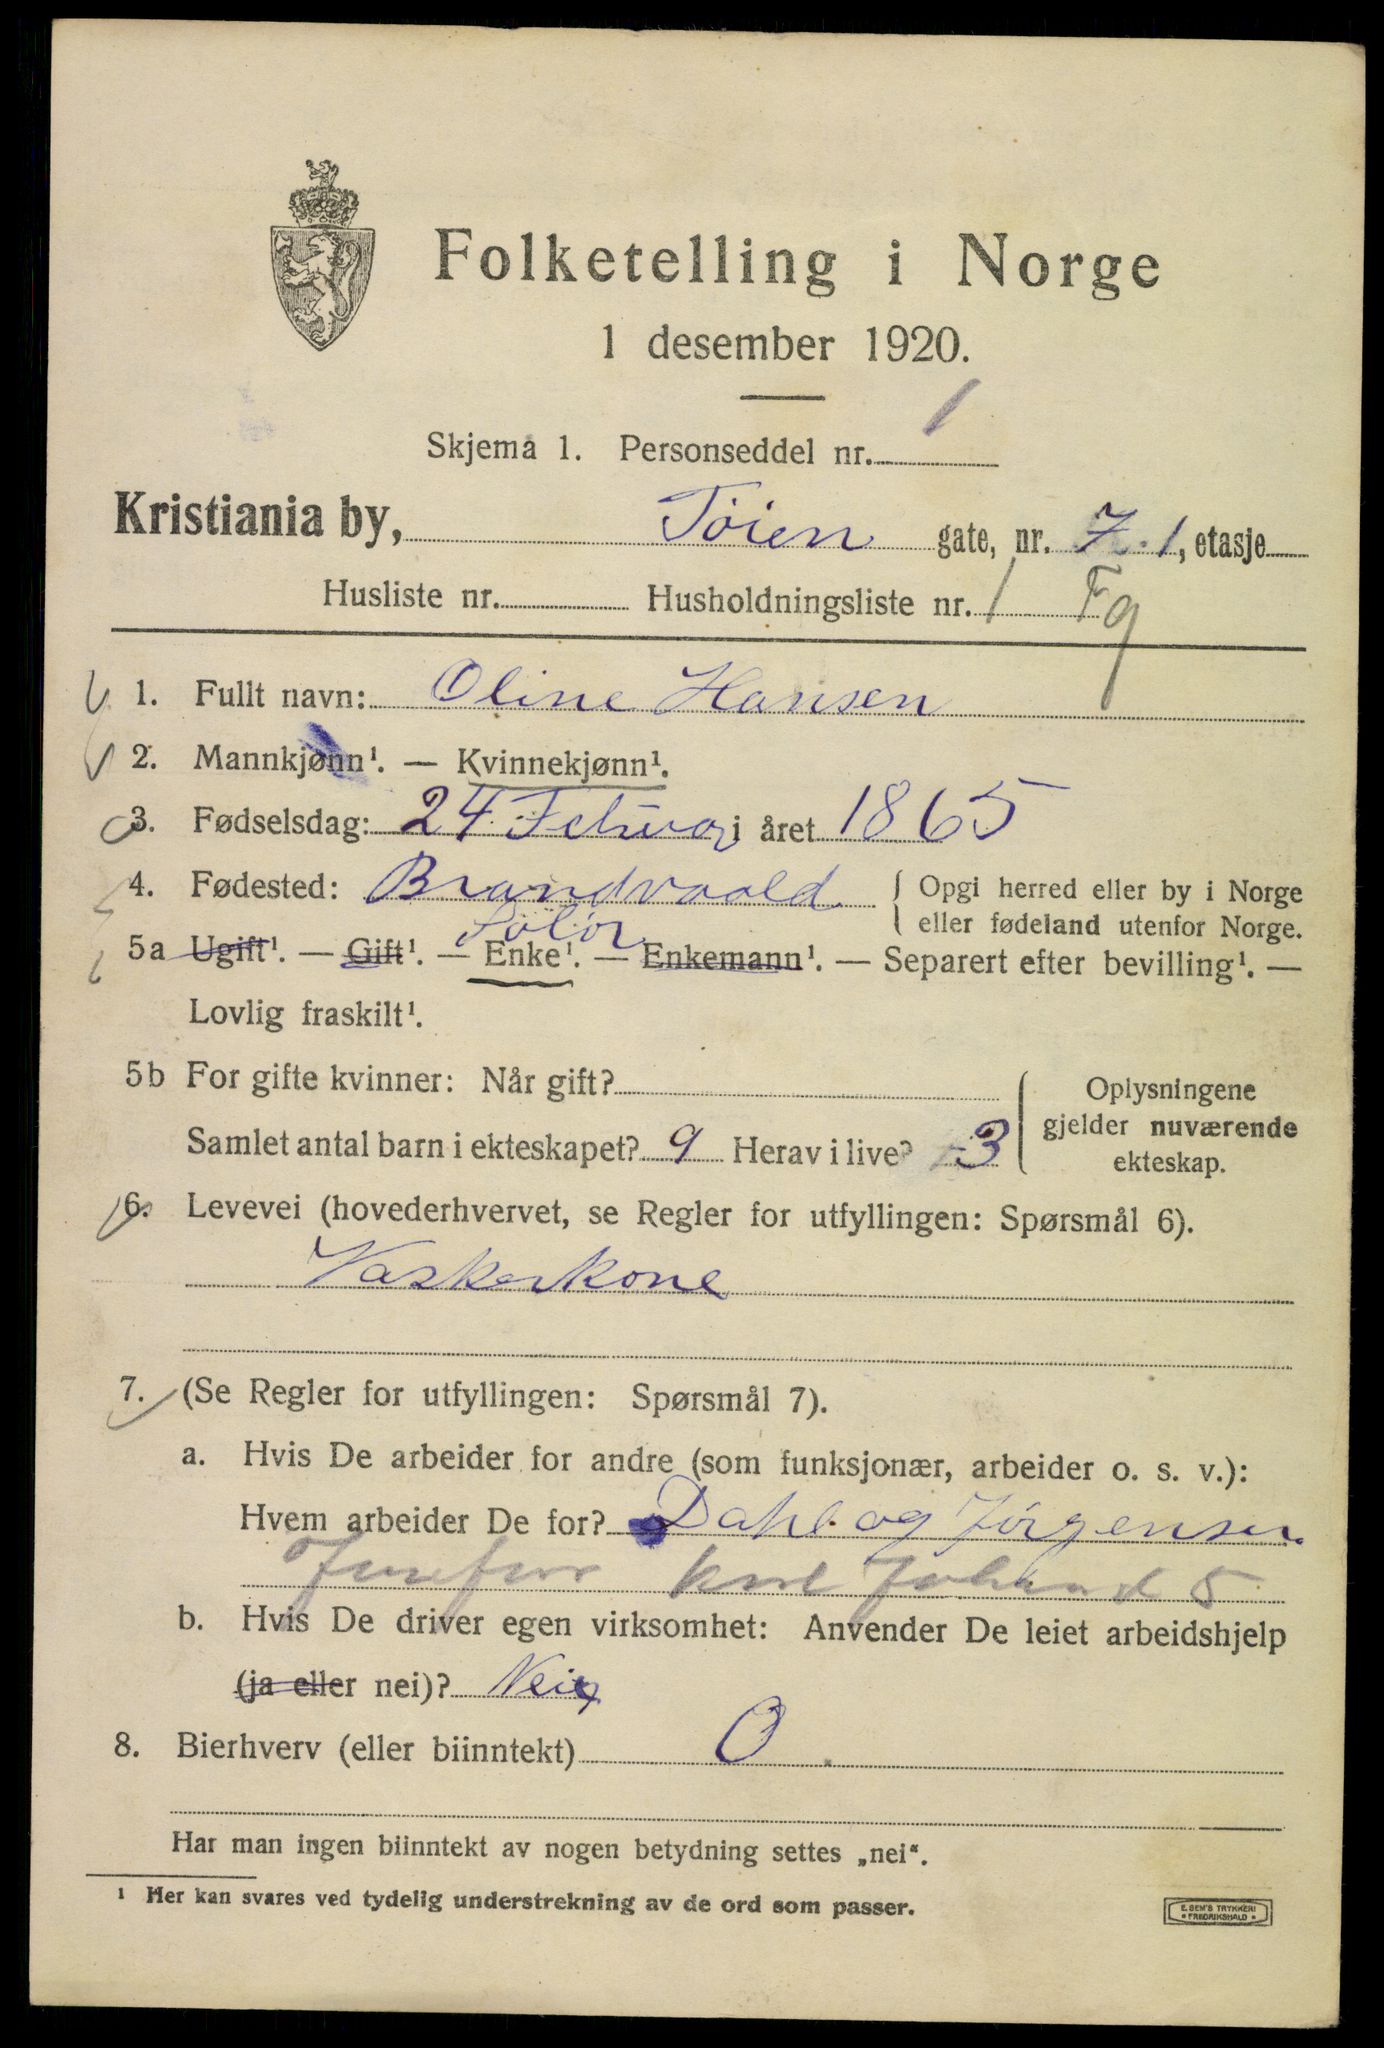 Folketelling i Norge
1 desember 1920.
Skjema 1. Personseddel nr. 1
Kristiania by, Töien gate, nr. 7. 1, etasje
Husliste nr. Husholdningsliste nr. 1 Fg
1. Fullt navn: Oline Hansen
2. Mannkjønn¹. — Kvinnekjønn¹.
3. Fødselsdag: 24 Februar i året 1865
4. Fødested: Brandvaald { Opgi herred eller by i Norge
Solör { eller fødeland utenfor Norge.
5a Ugift¹. — Gift¹. — Enke¹. — Enkemann¹. — Separert efter bevilling¹. —
Lovlig fraskilt¹.
5b For gifte kvinner: Når gift? { Oplysningene
Samlet antal barn i ekteskapet? 9 Herav i live? 3 gjelder nuværende
ekteskap.
6. Levevei (hovederhvervet, se Regler for utfyllingen: Spørsmål 6).
Vaskerkone
7. (Se Regler for utfyllingen: Spørsmål 7).
a. Hvis De arbeider for andre (som funksjonær, arbeider o. s. v.):
Hvem arbeider De for? Dahl og Jörgensen
Karl Johansgt 5
b. Hvis De driver egen virksomhet: Anvender De leiet arbeidshjelp
(ja eller nei)? Nei
8. Bierhverv (eller biinntekt) O
Har man ingen biinntekt av nogen betydning settes „nei“.
¹ Her kan svares ved tydelig understrekning av de ord som passer.
E. SEM'S TRYKKERI
• FREDRIKSHALD •